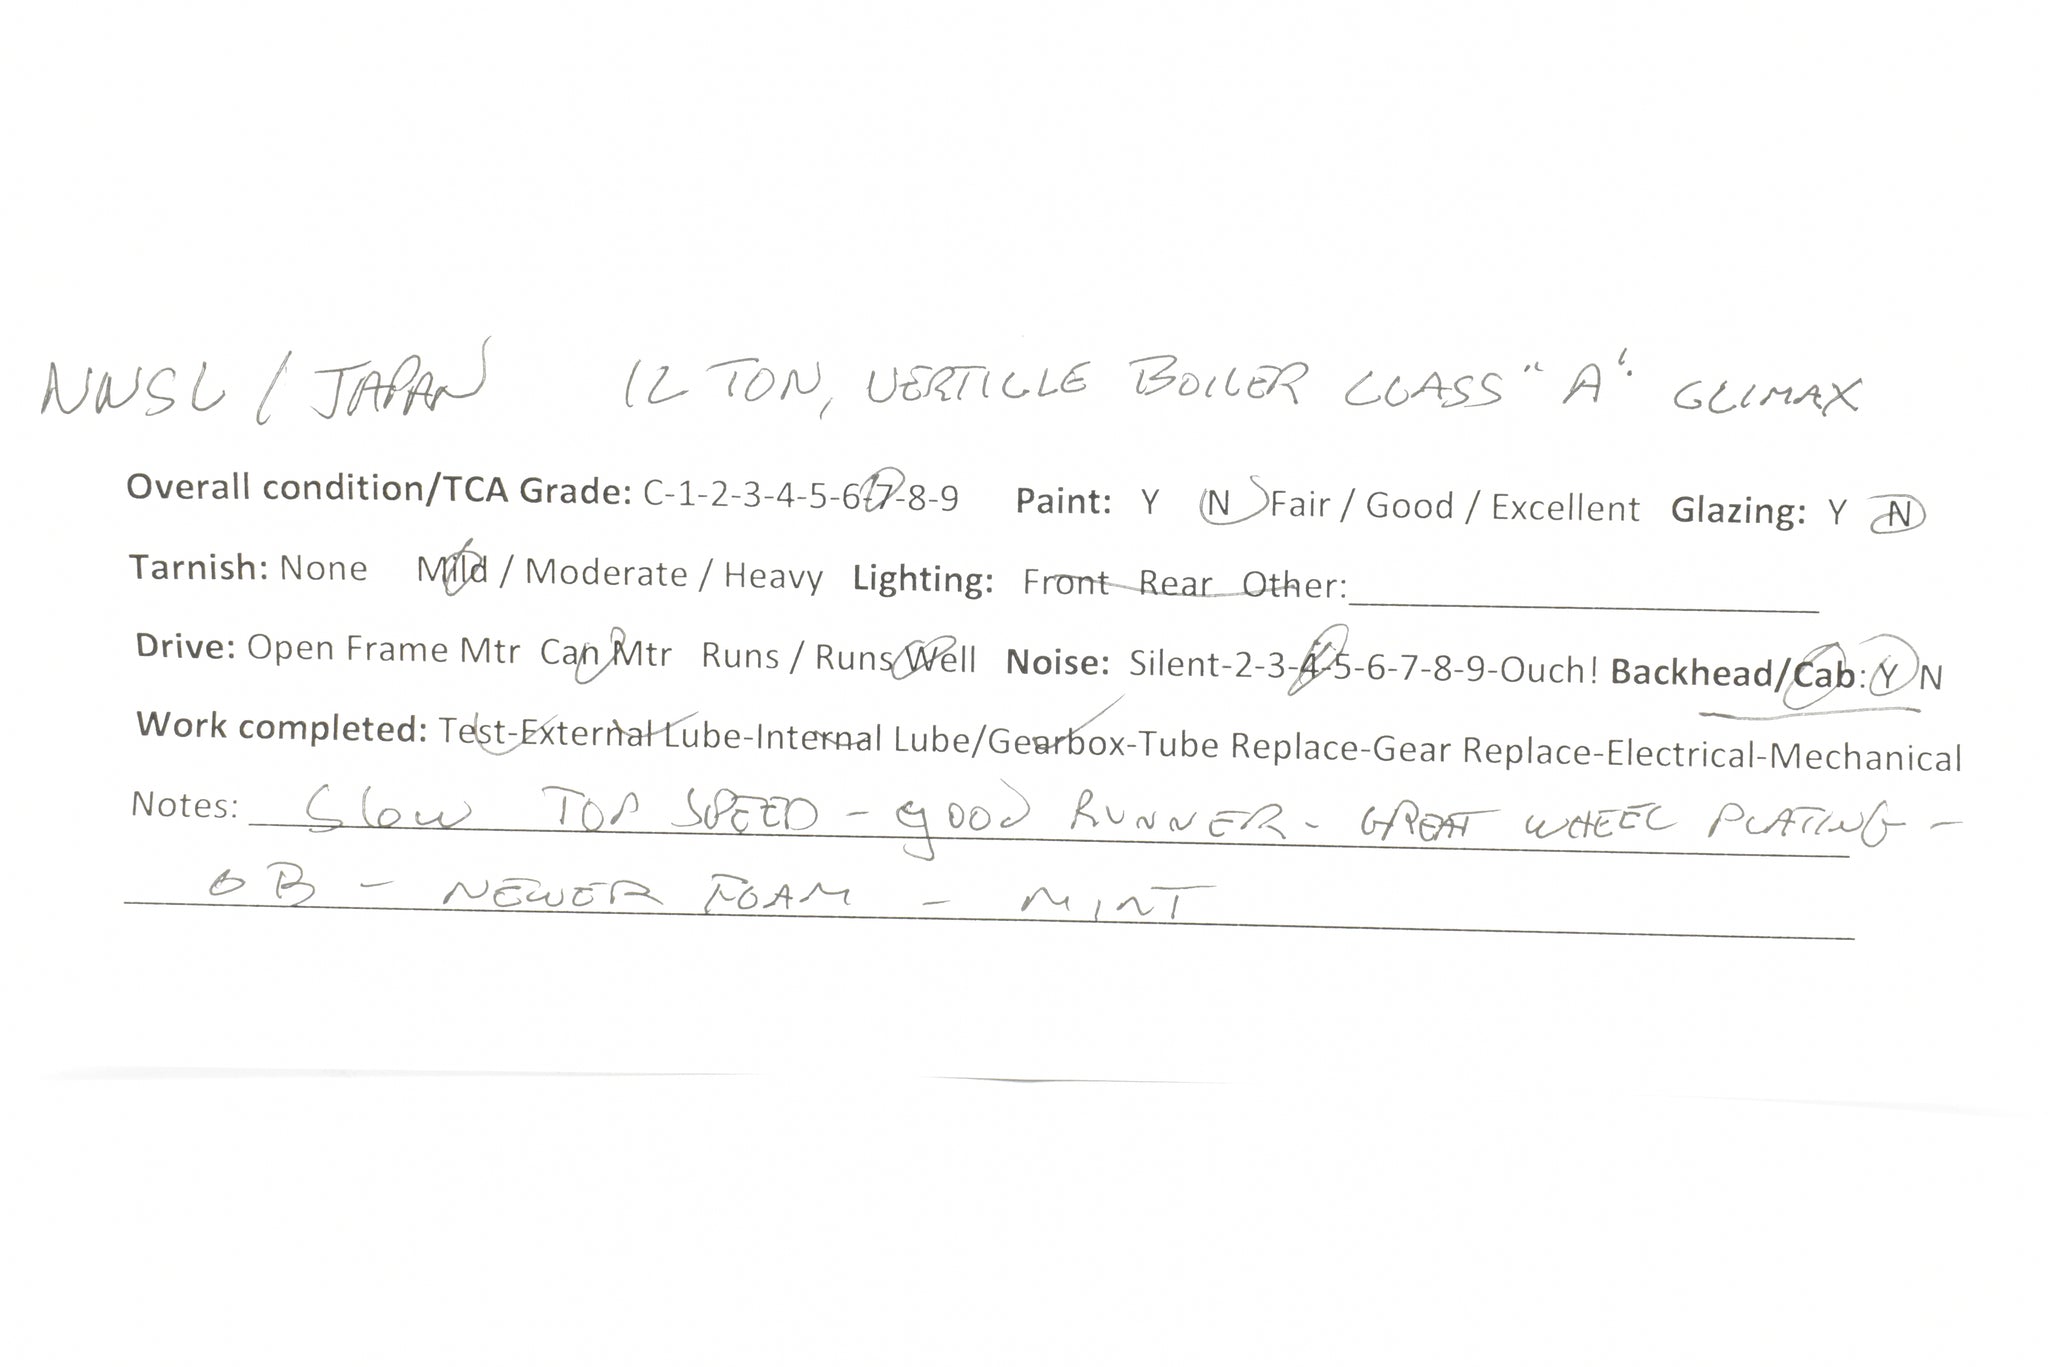 NWSL / JAPAN 12 TON, VERTICLE BOILER CLASS "A" CLIMAX
Overall condition/TCA Grade: C-1-2-3-4-5-6-7-8-9 Paint: Y N Fair / Good / Excellent Glazing: Y N
Tarnish: None Mild / Moderate / Heavy Lighting: Front Rear Other:
Drive: Open Frame Mtr Can Mtr Runs / Runs Well Noise: Silent-2-3-4-5-6-7-8-9-Ouch! Backhead/Cab: Y N
Work completed: Test-External Lube-Internal Lube/Gearbox-Tube Replace-Gear Replace-Electrical-Mechanical
Notes: Slow TOP SPEED - good RUNNER - GREAT WHEEL PLATING -
OB - NEWER FOAM - MINT